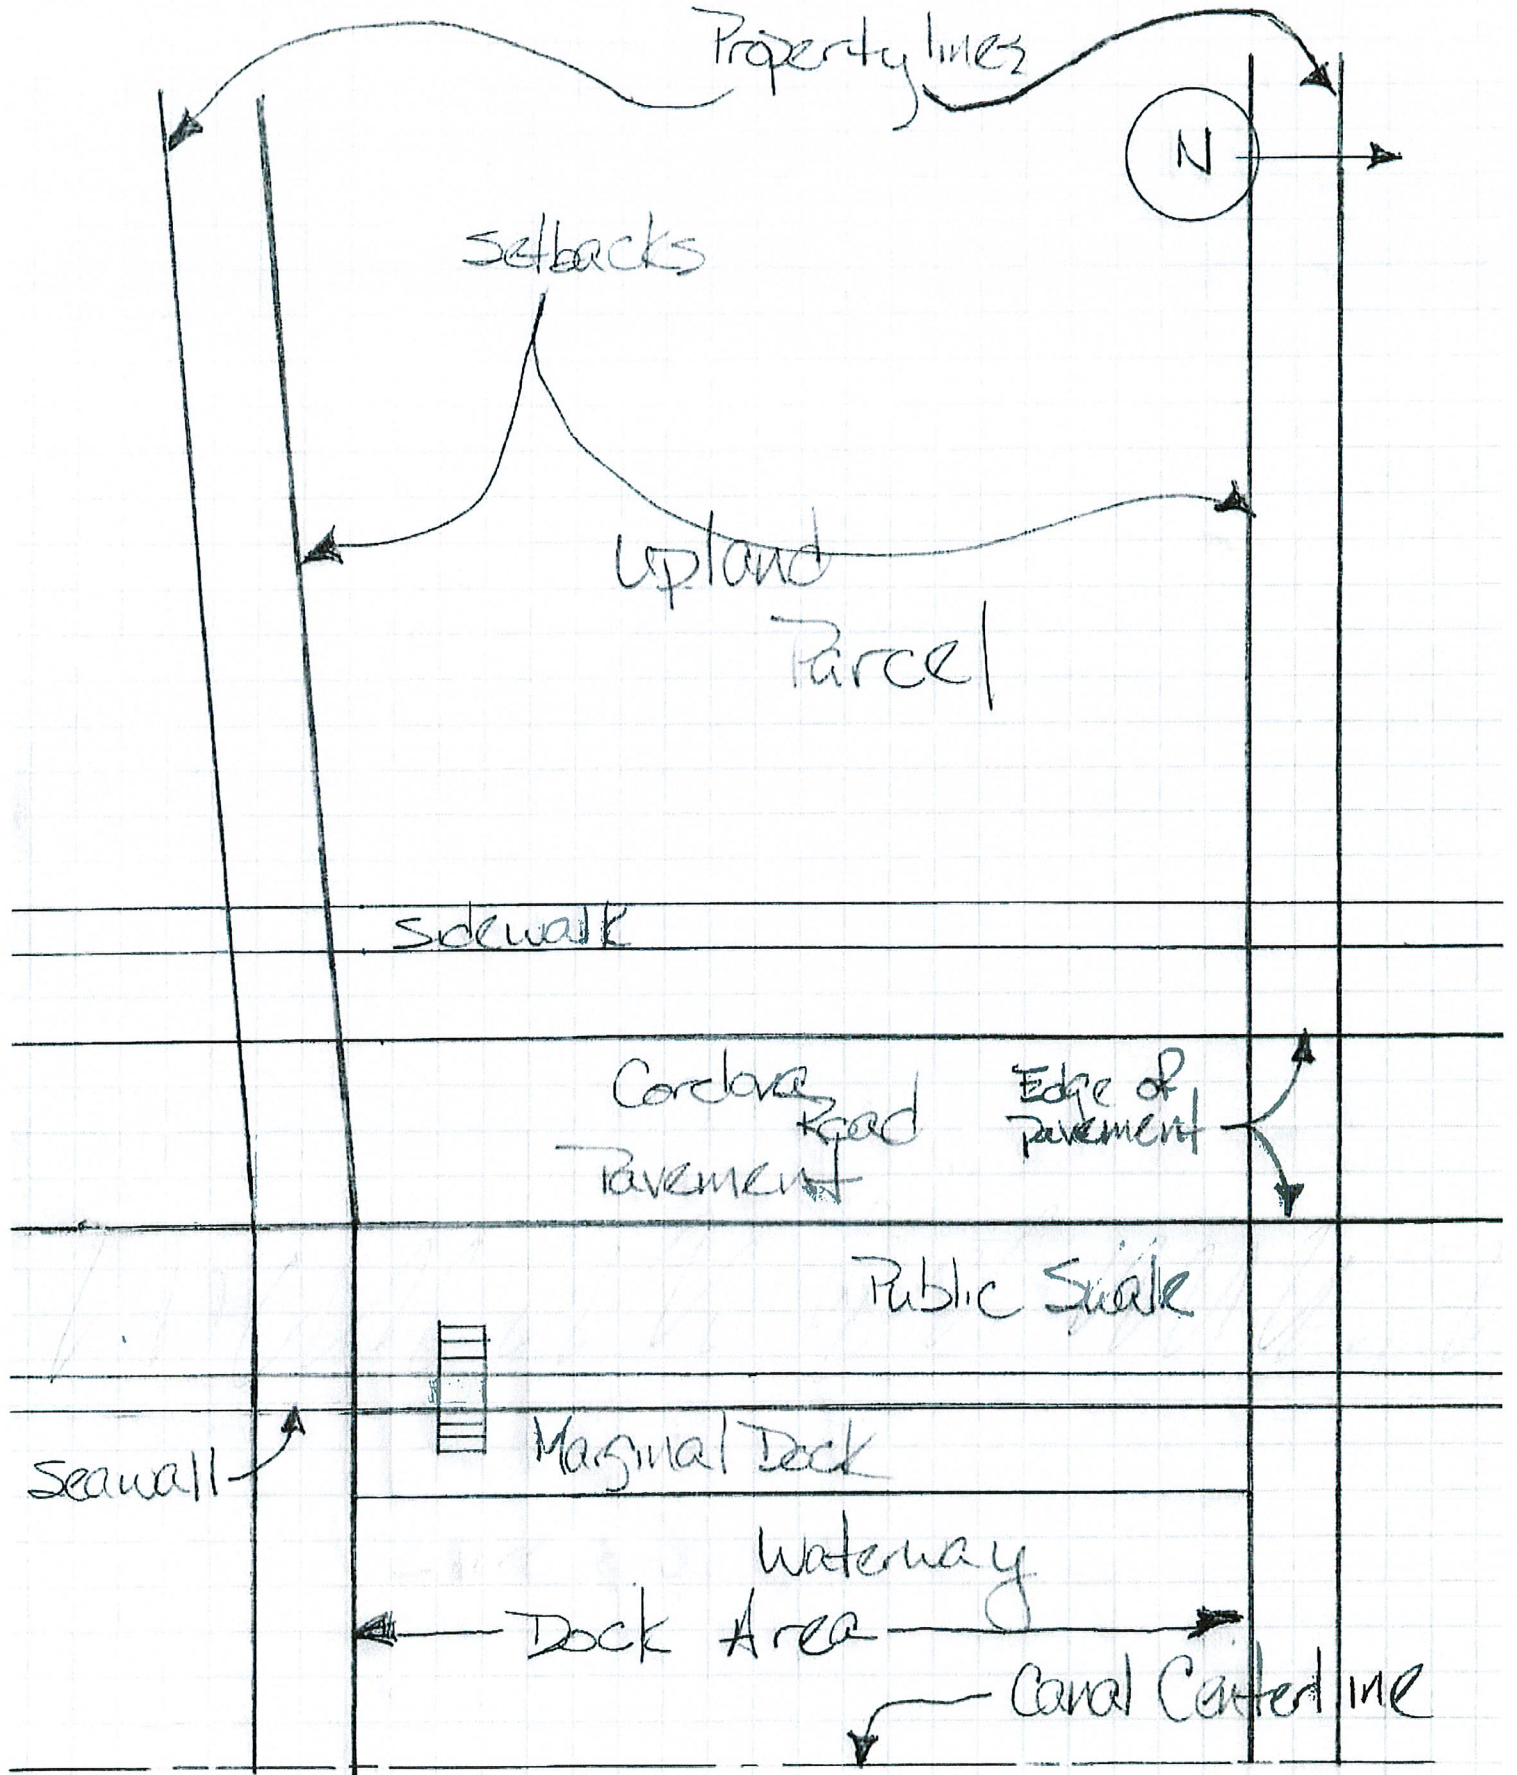 Property lines
N
setbacks
Upland
Parcel
Sidewalk
Cordova
Road
Pavement
Edge of
Pavement
Public Swale
Seawall
Marginal Dock
Waterway
Dock Area
Canal Centerline